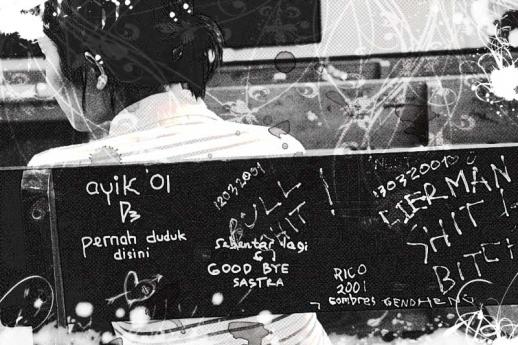 ayik '01
pernah duduk
disini
12032001
BULL
SHIT
sebentar lagi
GOOD BYE
SASTRA
RICO
2001
Gombres GENDHENG
13032001
LIERMAN
SHIT
BITCH